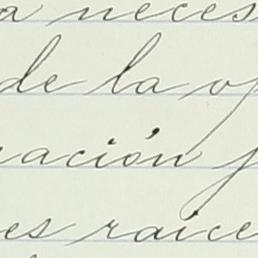 a neces
de la o
ación
es raice